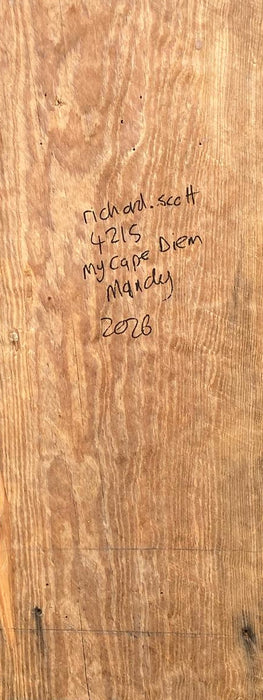 richard.scott
4215
my cape Diem
Mandy
2026